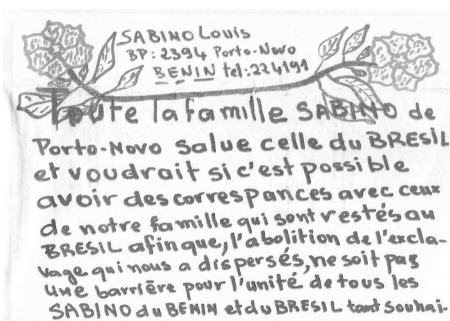 SABINO Louis
BP: 2394 Porto-Novo
BENIN tel: 224191
Toute la famille SABINO de
Porto-Novo salue celle du BRESIL
et voudrait si c'est possible
avoir des correspances avec ceux
de notre famille qui sont restés au
BRESIL afin que, l'abolition de l'escla-
vage qui nous a dispersés, ne soit pas
une barrière pour l'unité de tous les
SABINO du BENIN et du BRESIL tant souhai-